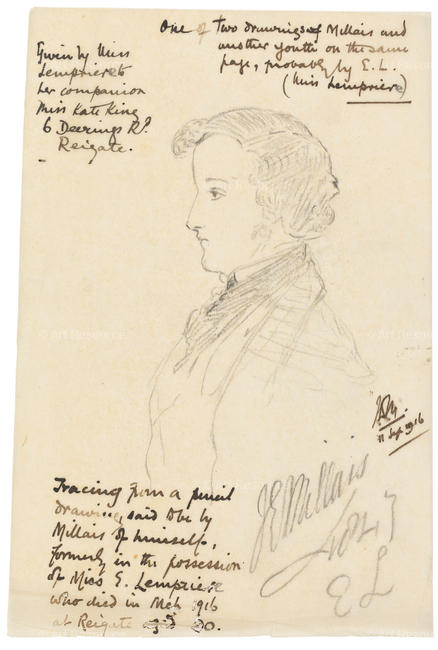 One of two drawings of Millais and
another youth on the same
page, probably by E.L.
(Miss Lempriere)
Given by Miss
Lempriere to
her companion
Miss Kate King
6 Deerings Rd
Reigate.
11 Sep 1916
J E Millais
E L
Tracing from a pencil
drawing, said to be by
Millais of himself,
formerly in the possession
of Miss E. Lempriere
who died in Mch 1916
at Reigate aged